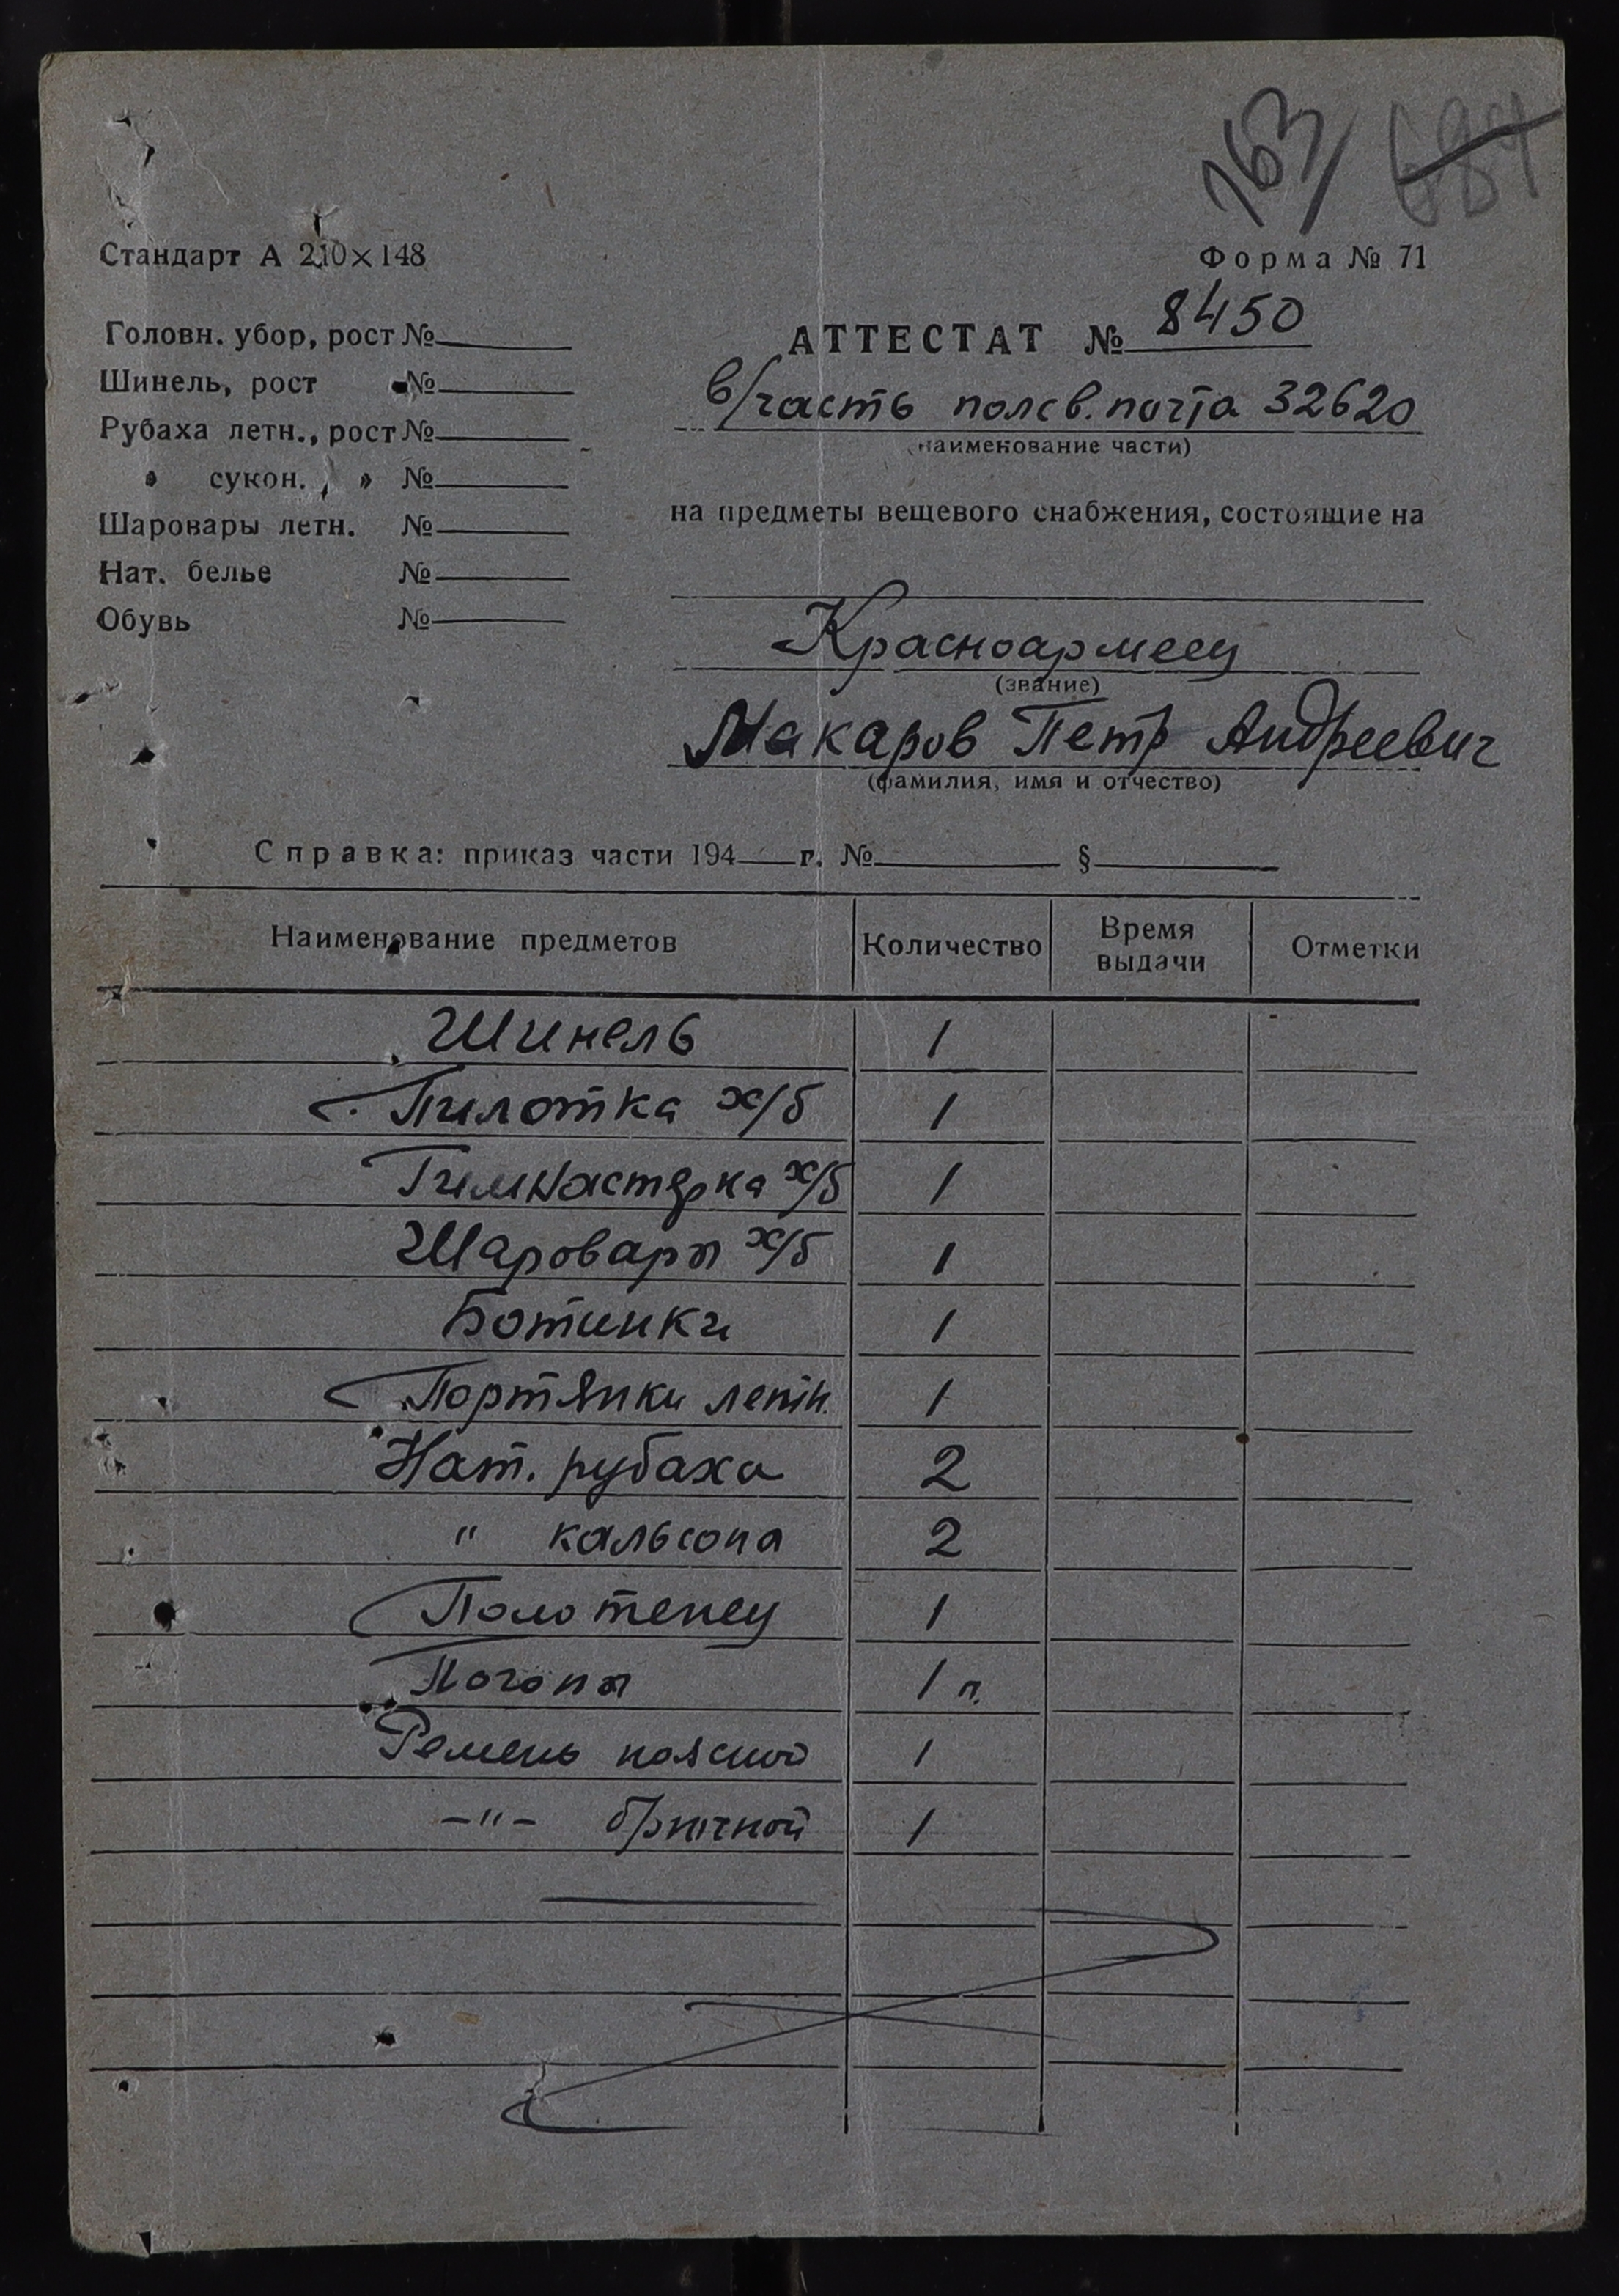 163
684
Стандарт А 210×148
Форма № 71
Головн. убор, рост №
Шинель, рост №
Рубаха летн., рост №
» сукон. , » №
Шаровары летн. №
Нат. белье №
Обувь №
АТТЕСТАТ № 8450
в/часть полев. почта 32620
(наименование части)
на предметы вещевого снабжения, состоящие на
Красноармеец
(звание)
Макаров Петр Андреевич
(фамилия, имя и отчество)
Справка: приказ части 194 г. № §
Наименование предметов Количество Время выдачи Отметки
Шинель 1
Пилотка х/б 1
Гимнастерка х/б 1
Шаровары х/б 1
Ботинки 1
Портянки летн. 1
Нат. рубаха 2
" кальсона 2
Полотенец 1
Погоны 1 п.
Ремень поясной 1
-"- брючной 1